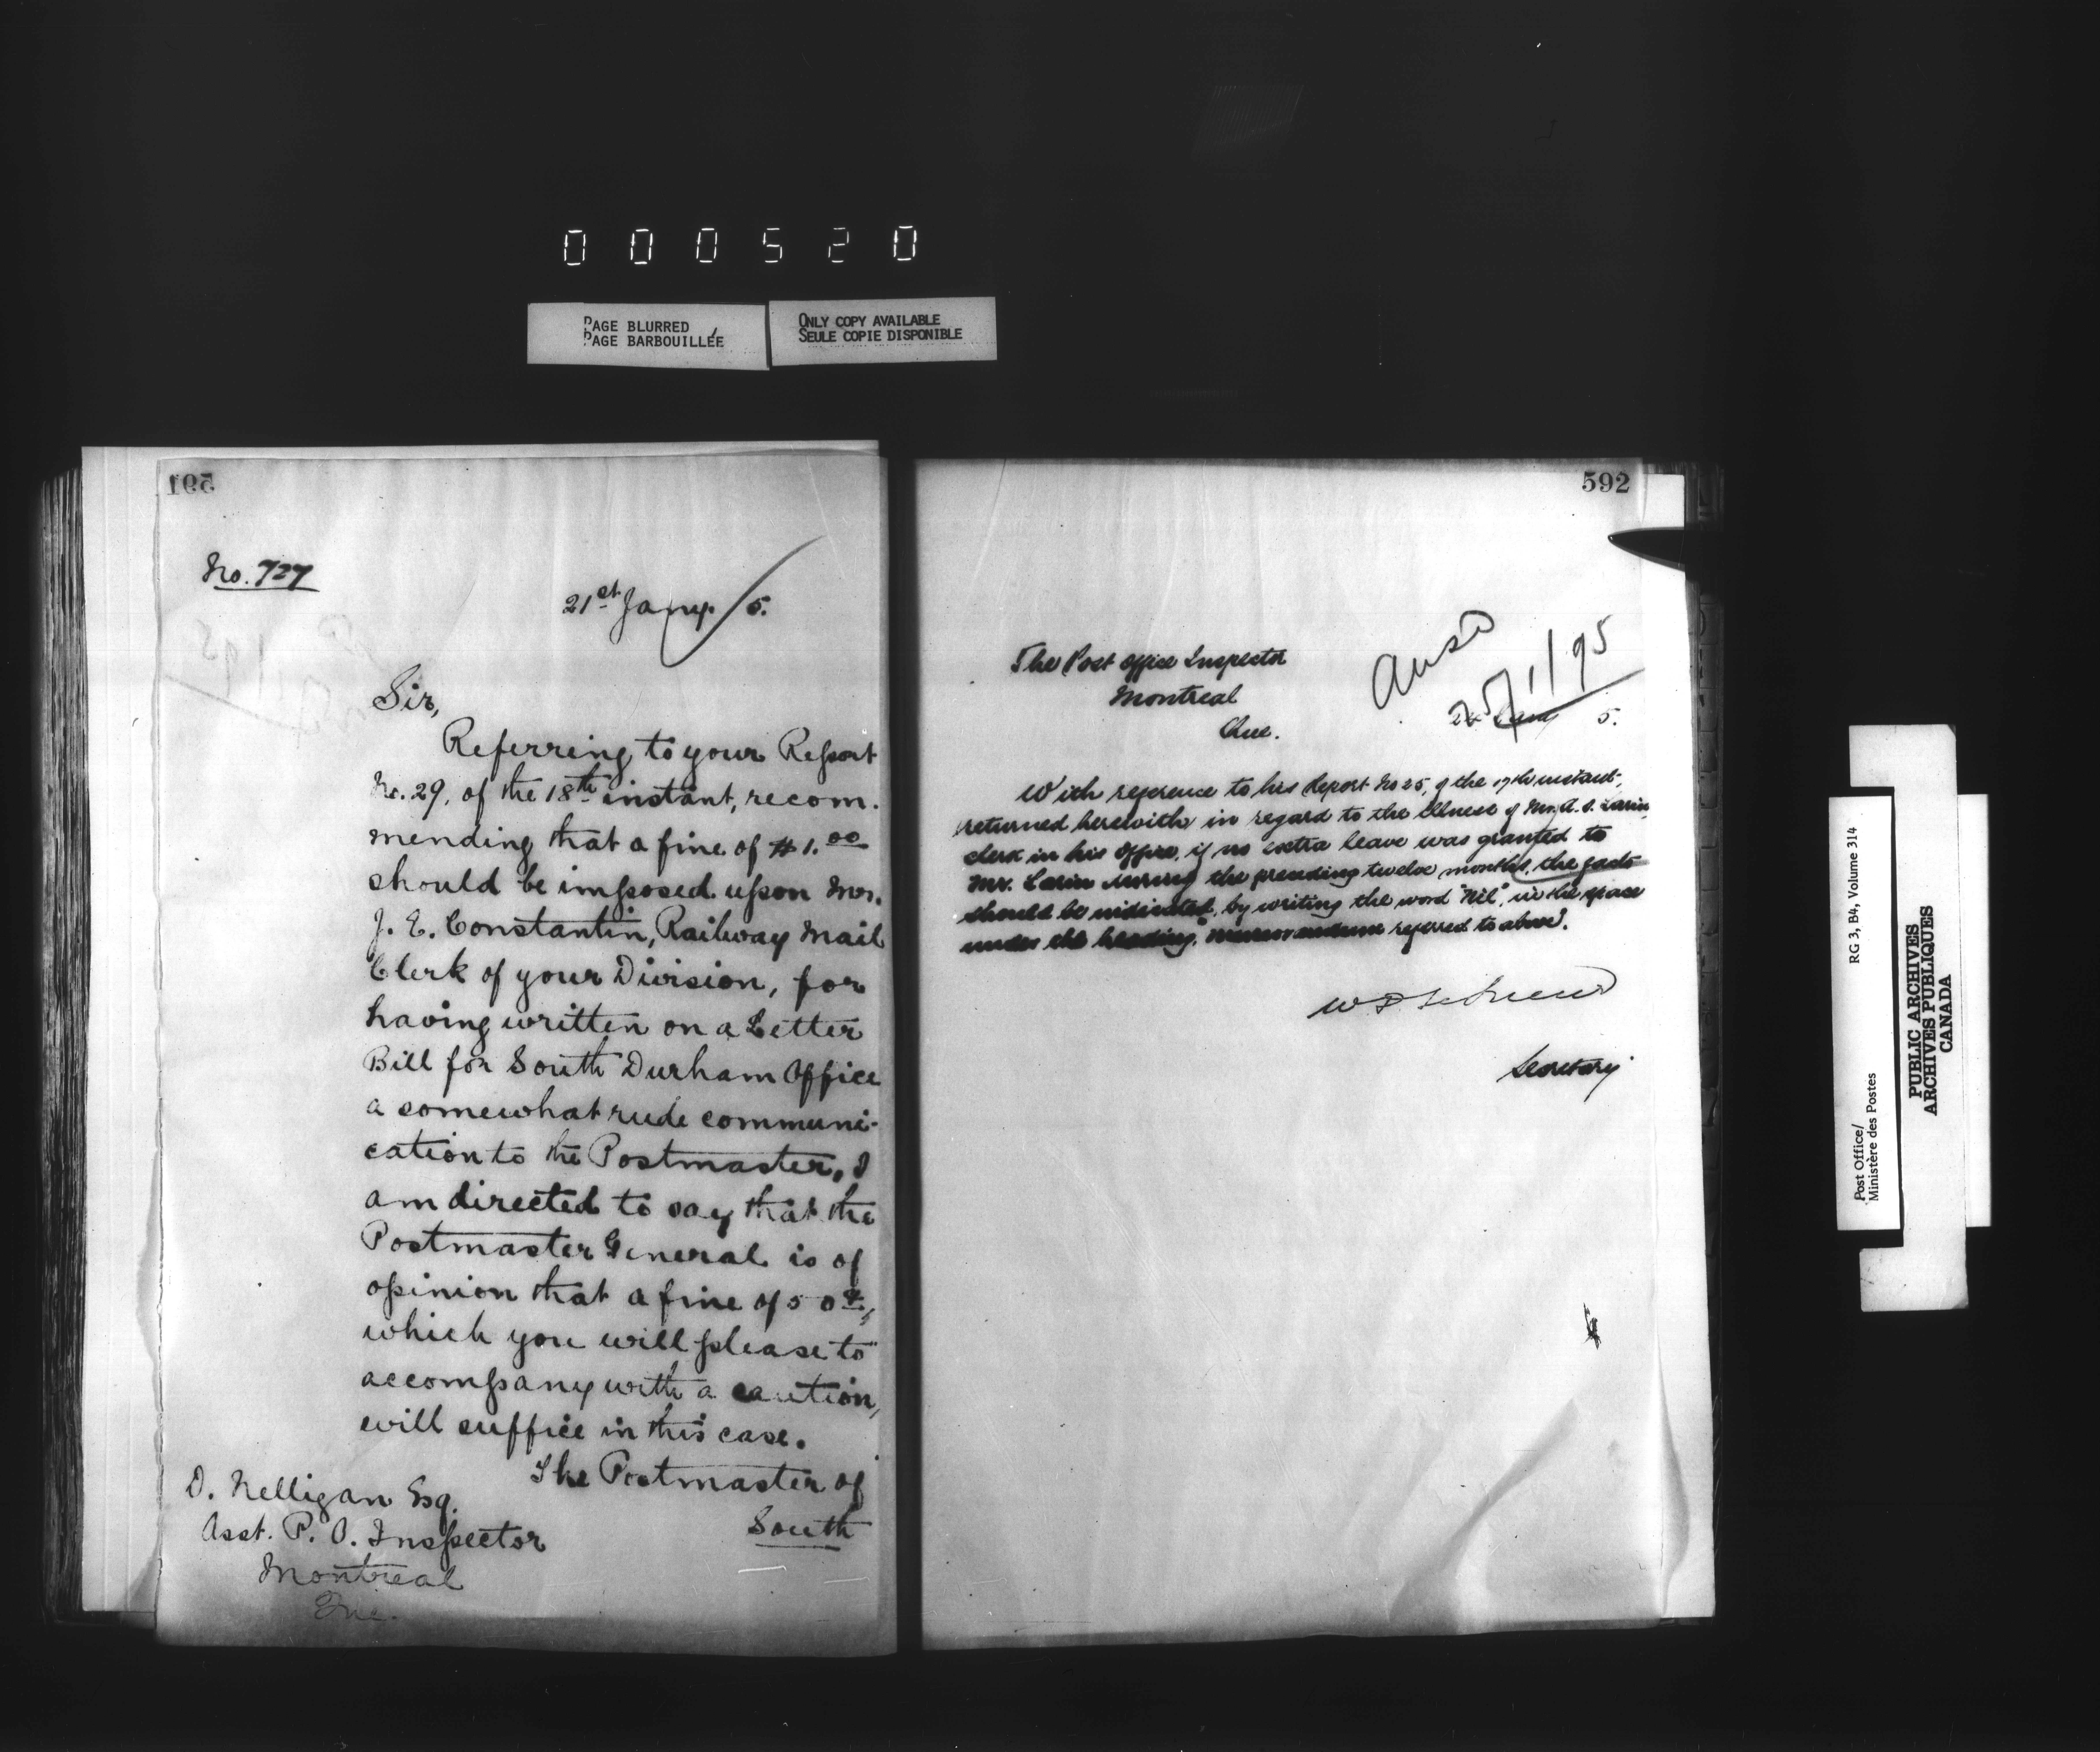 000520
PAGE BLURRED
PAGE BARBOUILLÉE
ONLY COPY AVAILABLE
SEULE COPIE DISPONIBLE
591
No. 727
21st Jany. /5.
Sir,
Referring to your Report
No. 29, of the 18th instant, recom-
mending that a fine of $1.00
should be imposed upon Mr.
J. E. Constantin, Railway Mail
Clerk of your Division, for
having written on a Letter
Bill for South Durham Office
a somewhat rude communi-
cation to the Postmaster, I
am directed to say that the
Postmaster General is of
opinion that a fine of 50¢,
which you will please to
accompany with a caution,
will suffice in this case.
The Postmaster of
South
D. Nelligan Esq.
Asst. P. O. Inspector
Montreal
Que.
592
The Post Office Inspector
Montreal
Que.
Ansd
25/1/95
5.
With reference to his Report No 25, of the 17th instant,
returned herewith in regard to the illness of Mr. A. S. Larin,
clerk in his Office, if no extra leave was granted to
Mr. Larin during the preceding twelve months, the facts
should be indicated, by writing the word "Nil", in the space
under the heading, referred to above.
Secretary
Post Office/
Ministère des Postes
RG 3, B4, Volume 314
PUBLIC ARCHIVES
ARCHIVES PUBLIQUES
CANADA